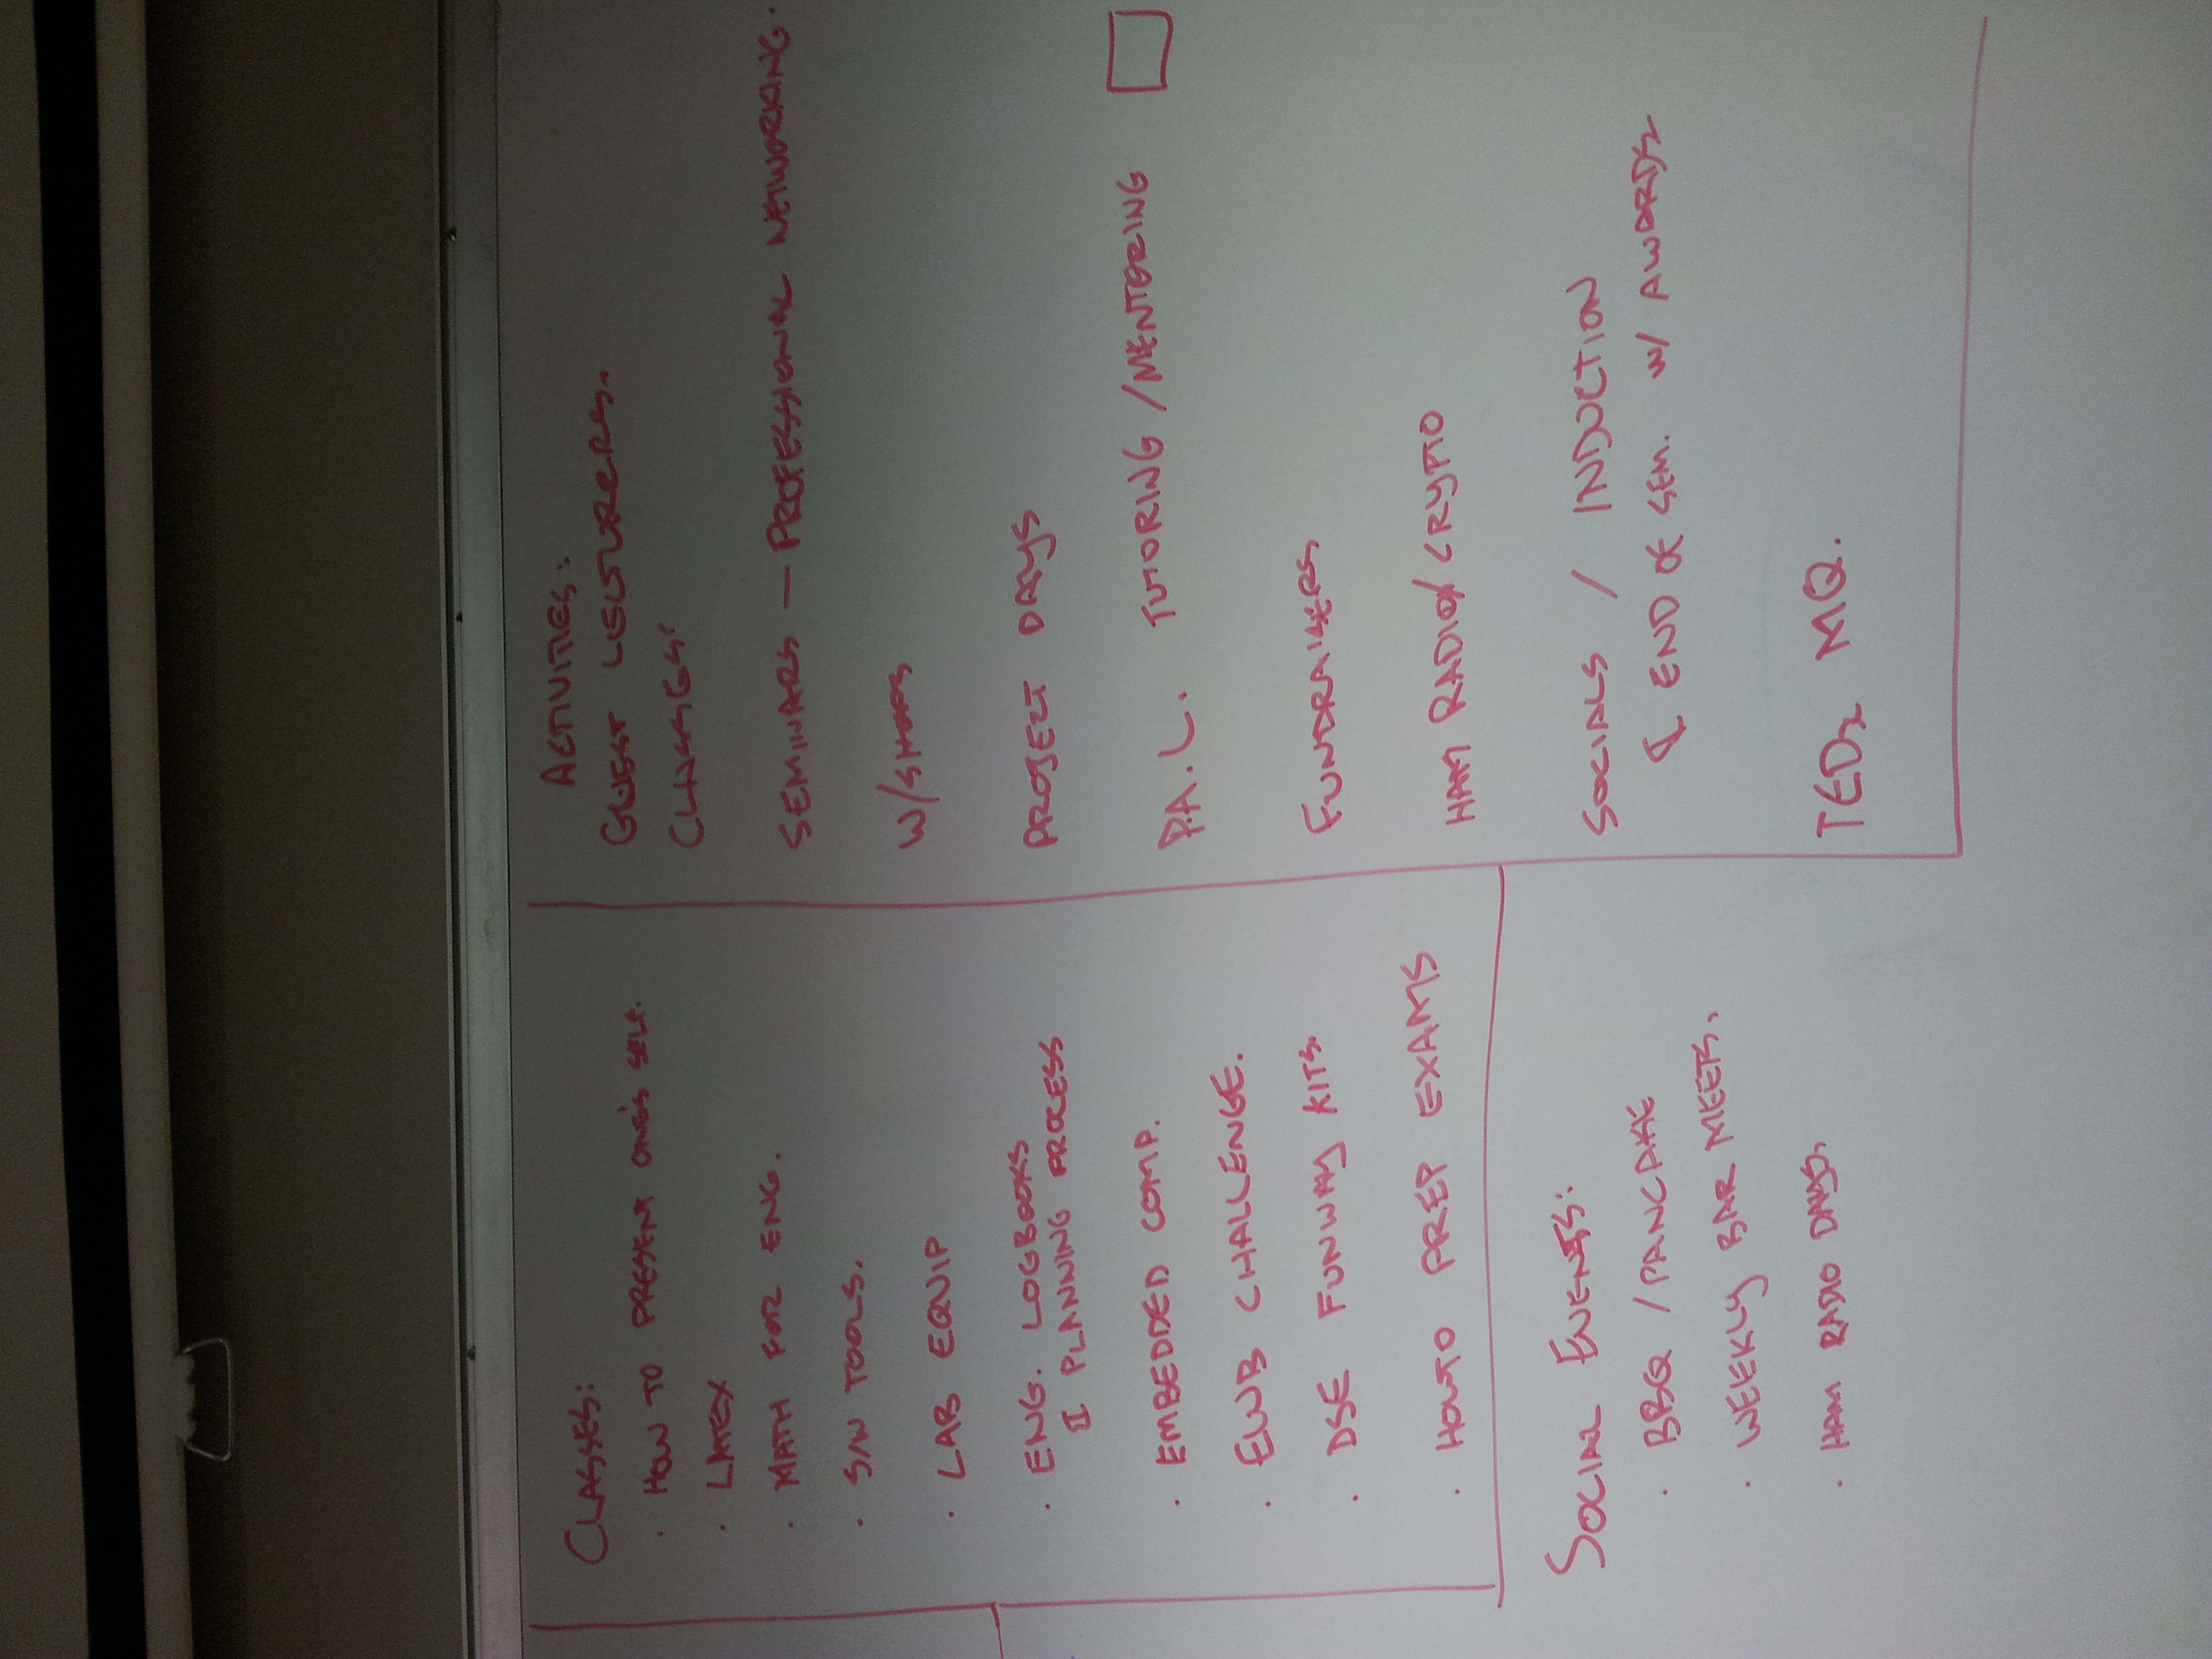 CLASSES:
· HOW TO PRESENT ONE'S SELF.
· LATEX
· MATH FOR ENG.
· S/W TOOLS.
· LAB EQUIP
· ENG. LOGBOOKS
& PLANNING PROCESS
· EMBEDDED COMP.
· EWB CHALLENGE.
· DSE FUNWAY KITS.
· HOWTO PREP EXAMS
SOCIAL EVENTS:
· BBQ / PANCAKE
· WEEKLY BAR MEETS.
· HAM RADIO DAYS.
ACTIVITIES:
GUEST LECTURERS.
CLASSES:
SEMINARS — PROFESSIONAL NETWORKING.
W/SHOPS
PROJECT DAYS
P.A.L. TUTORING / MENTORING
FUNDRAISERS
HAM RADIO / CRYPTO
SOCIALS / INDUCTION
& END OF SEM. W/ AWARDS
TEDx MQ.